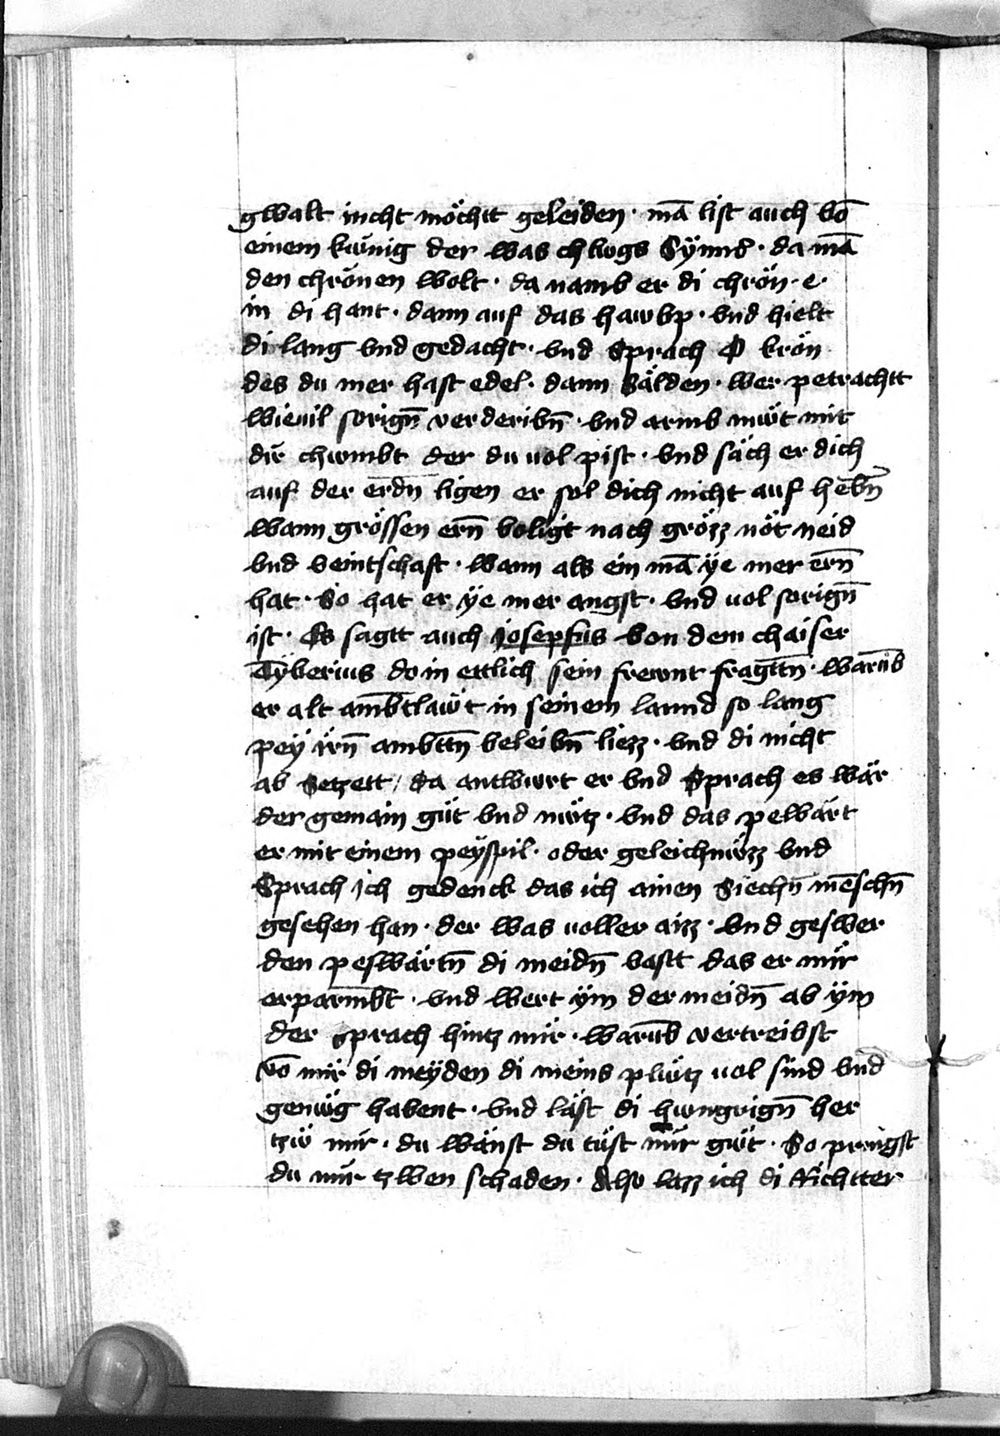 gwalt nicht möchtt geleiden · mā list auch vō
einem kwnig der was chlwgs Sÿnns · da mā
den chrönen wolt · da namb er di chrön · e ·
in di hant · dann auf das hawbp · vnd hielt
di lang vnd gedacht · vnd Sprach O krön
des du mer hast edel · dann Sälden · wer petrachtt
wieuil sorign̄ verderibn̄ · vnd armb mẅt mit
dir chwmbt der du uol pist · vnd säch er dich
auf der erdn̄ ligen er sol dich nicht auf hebn̄
wann grössen ern̄ voligt nach grözz nöt neid
vnd veintschaft · wann als ein mā ÿe mer ern̄
hat · So hat er ÿe mer angst · vnd uol sorign̄
ist · Es sagtt auch josepfus von dem chaiser
Tÿberius do in ettlich sein frewnt fragttn̄ · warūb
er alt ambtlawt in seinem lannd so lang
peÿ irn̄ ambttn̄ beleibn̄ liezz · vnd di nicht
ab Setzett / Da antwurt er vnd Sprach es wär
der gemain güt vnd nẅtz · vnd das pewärt
er mit einem peÿspil · oder geleichnẅzz vnd
Sprach jch gedenck das ich ainen Siechn̄ mēschn̄
gesehen han · der was uoller aizz · vnd geswer
den peswärtn̄ di meidn̄ vastt das er mir
erparmbt · vnd wert ÿm der meidn̄ ab ÿm
der sprach hintz mir · warūb vertreibst
vō mir di meÿden di meins plẅtz uol sind vnd
genẅg habent · vnd läst di hwngrign̄ her
tzẅ mir · du wänst du tüst mir gẅt · So pringst
du mir tzwen schaden · Also lazz ich di Richtter